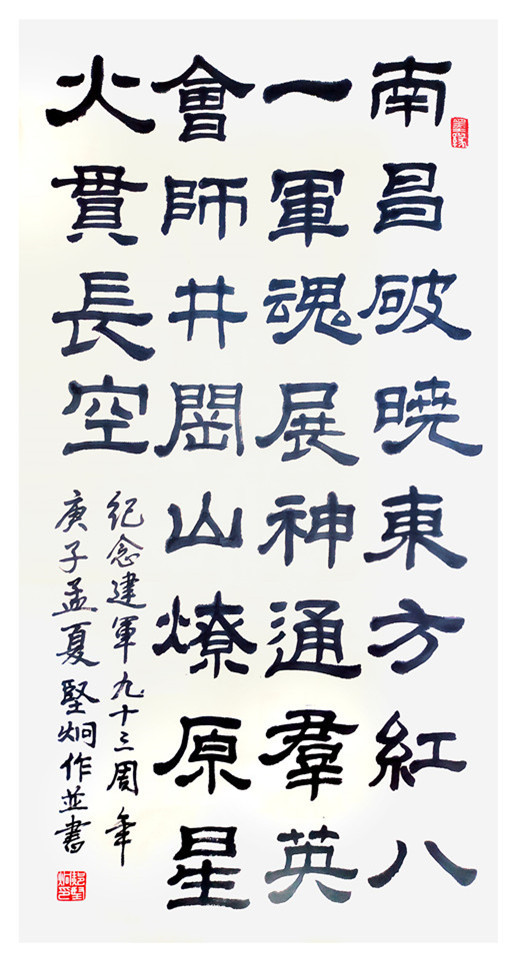 南昌破曉東方紅八
一軍魂展神通羣英
會師井岡山燎原星
火貫長空
紀念建軍九十三周年
庚子孟夏堅炯作並書